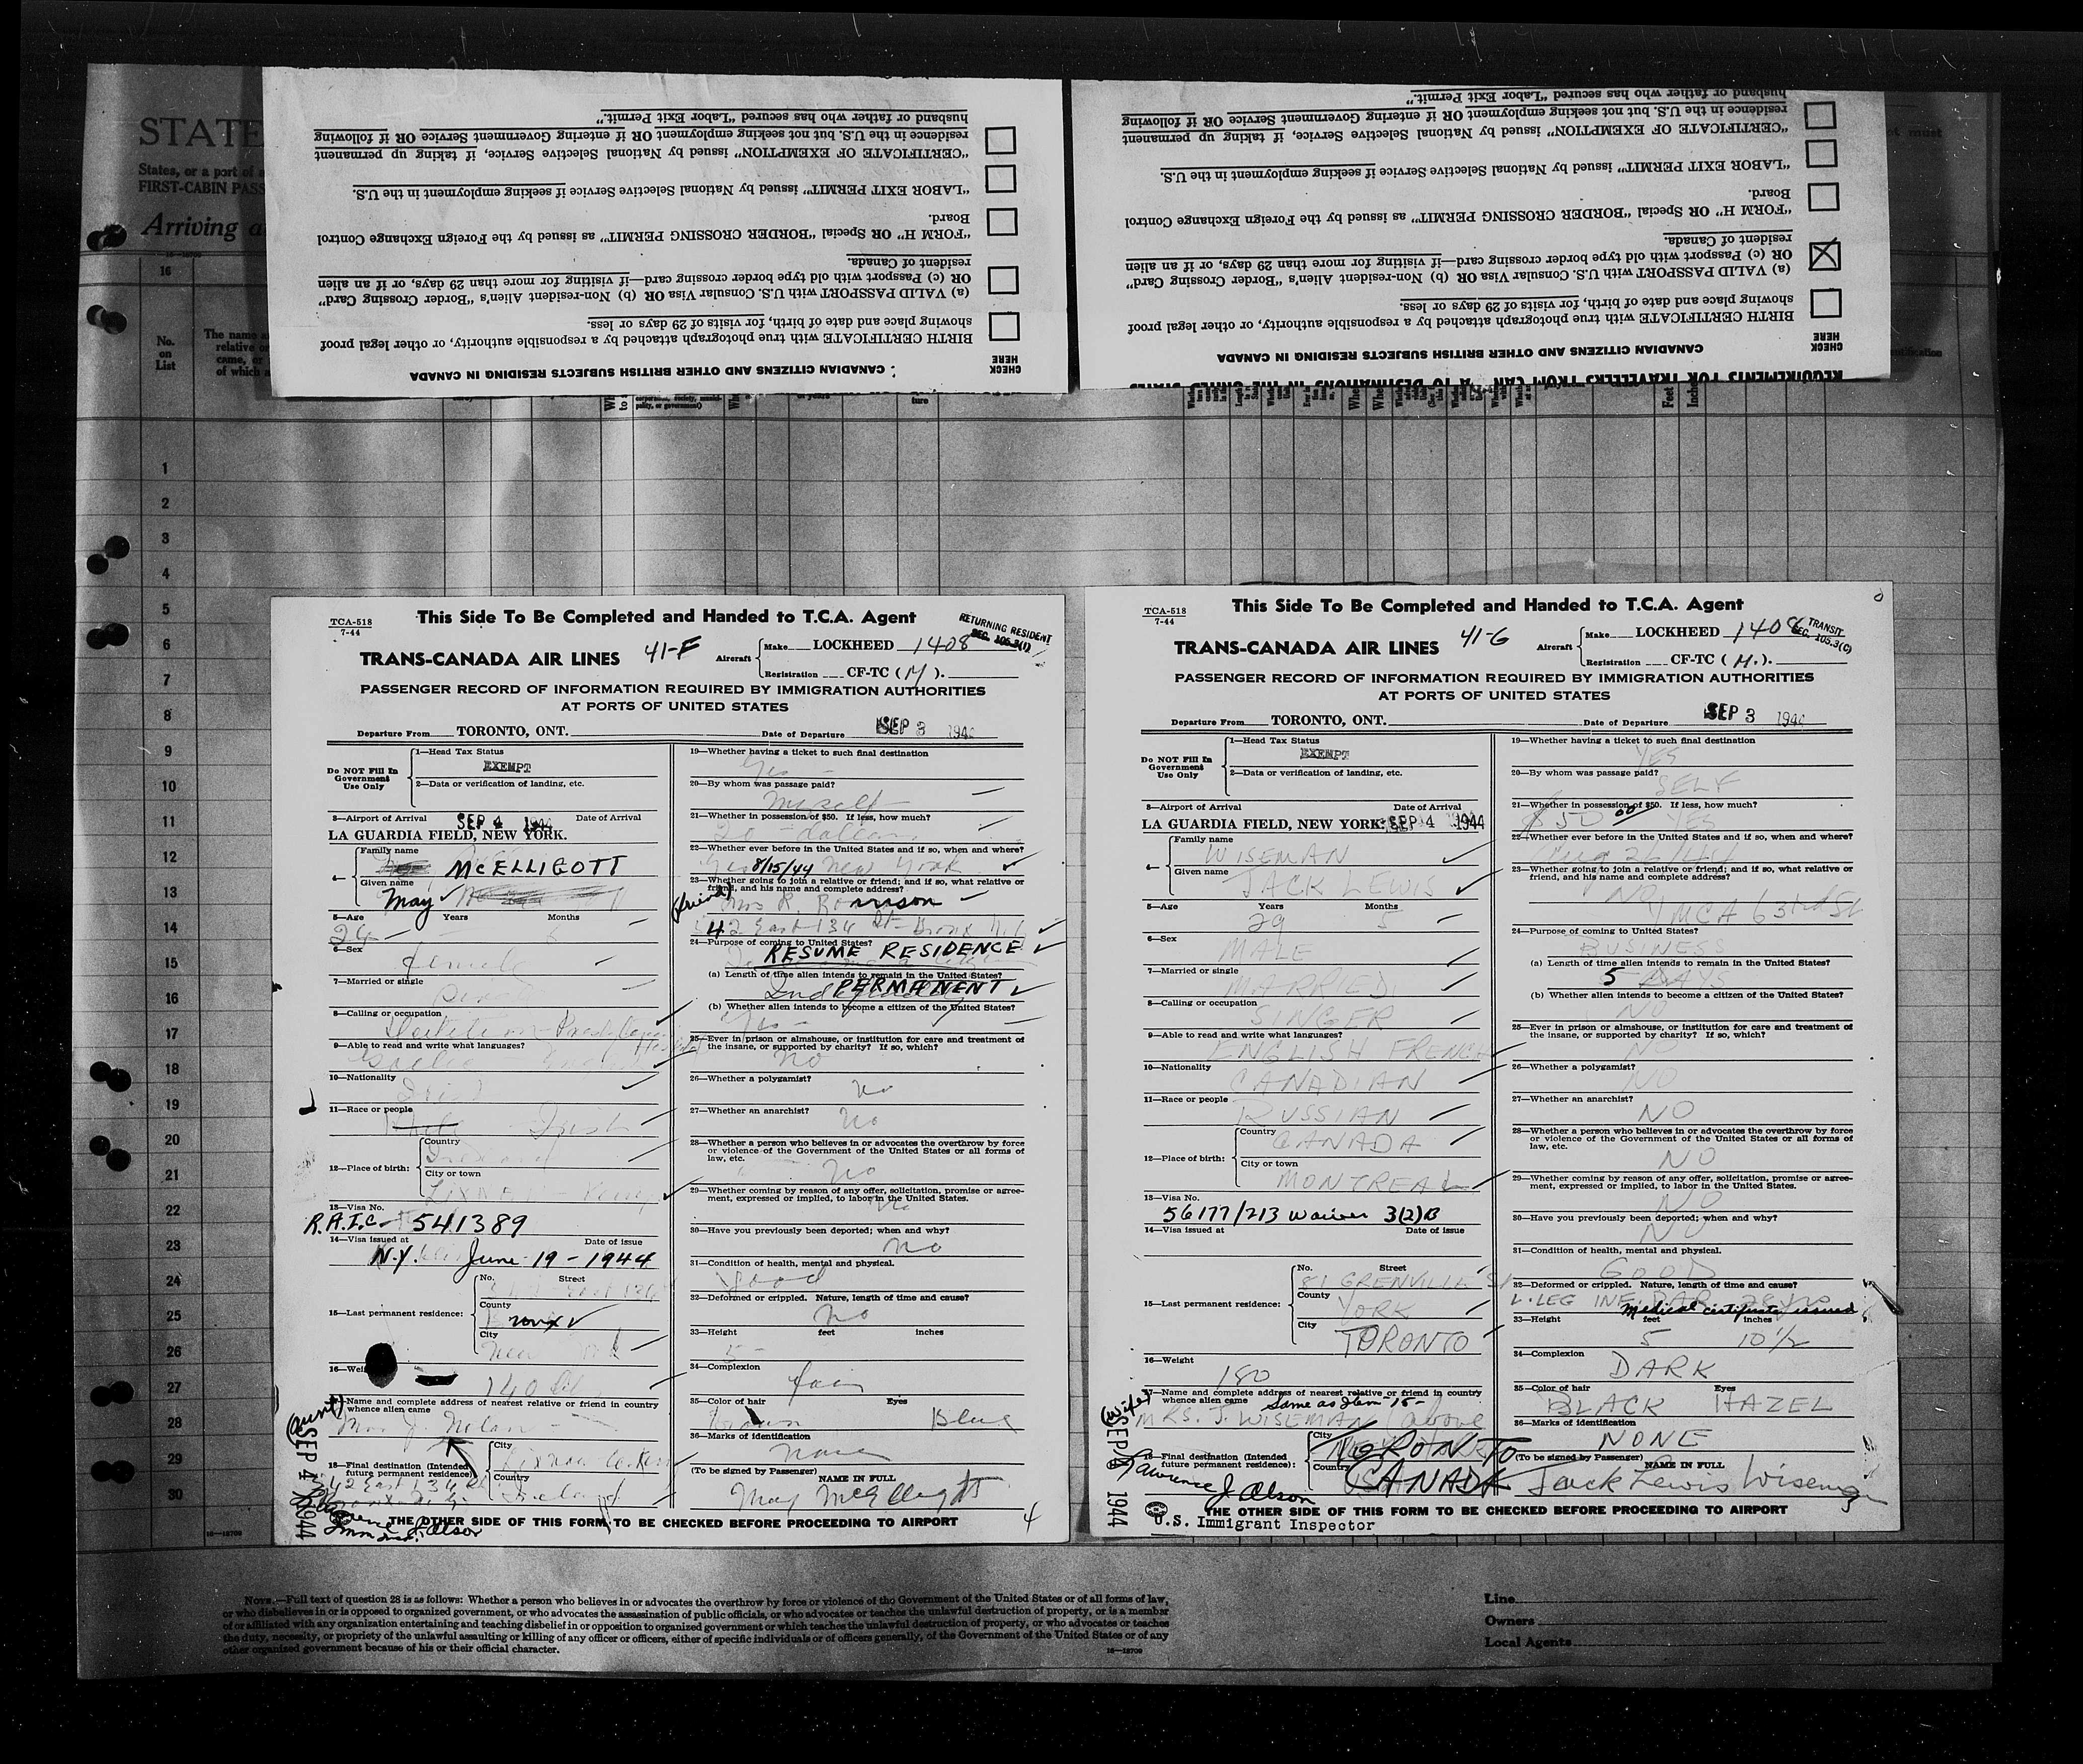 STATE
States, or a port of a
FIRST-CABIN PASS
Arriving a
16—18709
16
No.
on
List
The name a
relative o
came, or
of which a
husband or father who has secured "Labor Exit Permit."
residence in the U.S. but not seeking employment OR if entering Government Service OR if following
"CERTIFICATE OF EXEMPTION" issued by National Selective Service, if taking up permanent
"LABOR EXIT PERMIT" issued by National Selective Service if seeking employment in the U.S.
Board.
"FORM H" OR Special "BORDER CROSSING PERMIT" as issued by the Foreign Exchange Control
resident of Canada.
OR (c) Passport with old type border crossing card—if visiting for more than 29 days, or if an alien
(a) VALID PASSPORT with U.S. Consular Visa OR (b) Non-resident Alien's "Border Crossing Card"
showing place and date of birth, for visits of 29 days or less.
BIRTH CERTIFICATE with true photograph attached by a responsible authority, or other legal proof
CHECK
HERE
CANADIAN CITIZENS AND OTHER BRITISH SUBJECTS RESIDING IN CANADA
husband or father who has secured "Labor Exit Permit."
residence in the U.S. but not seeking employment OR if entering Government Service OR if following
"CERTIFICATE OF EXEMPTION" issued by National Selective Service, if taking up permanent
"LABOR EXIT PERMIT" issued by National Selective Service if seeking employment in the U.S.
Board.
"FORM H" OR Special "BORDER CROSSING PERMIT" as issued by the Foreign Exchange Control
resident of Canada.
OR (c) Passport with old type border crossing card—if visiting for more than 29 days, or if an alien
(a) VALID PASSPORT with U.S. Consular Visa OR (b) Non-resident Alien's "Border Crossing Card"
showing place and date of birth, for visits of 29 days or less.
BIRTH CERTIFICATE with true photograph attached by a responsible authority, or other legal proof
CHECK
HERE
CANADIAN CITIZENS AND OTHER BRITISH SUBJECTS RESIDING IN CANADA
REQUIREMENTS FOR TRAVELLERS FROM CAN A TO DESTINATIONS IN THE UNITED STATES
Feet
Inches
1
2
3
4
5
6
7
8
9
10
11
12
13
14
15
16
17
18
19
20
21
22
23
24
25
26
27
28
29
30
16—18709
TCA-518
7-44
This Side To Be Completed and Handed to T.C.A. Agent
RETURNING RESIDENT
SEC. 105.3(1)
TRANS-CANADA AIR LINES 41-F
Aircraft Make LOCKHEED 1408
Registration CF-TC ( M ).
PASSENGER RECORD OF INFORMATION REQUIRED BY IMMIGRATION AUTHORITIES
AT PORTS OF UNITED STATES
Departure From TORONTO, ONT. Date of Departure SEP 3 1944
Do NOT Fill In
Government
Use Only
1—Head Tax Status
EXEMPT
2—Data or verification of landing, etc.
3—Airport of Arrival SEP 4 1944 Date of Arrival
LA GUARDIA FIELD, NEW YORK.
4— Family name
McELLIGOTT
Given name
May
5—Age Years Months
6—Sex
female
7—Married or single
8—Calling or occupation
9—Able to read and write what languages?
10—Nationality
11—Race or people
Irish
12—Place of birth: Country
City or town
13—Visa No.
R.A.I.C. 541389
14—Visa issued at Date of issue
N.Y. June-19-1944
15—Last permanent residence: No. Street
County
Bronx
City
New
16—Wei
140
17—Name and complete address of nearest relative or friend in country
whence alien came
(aunt)
Mrs J. Nolan
18—Final destination (Intended
future permanent residence)
City
Country
SEP 4 1944
Lawrence J. Olson
Imm. Insp.
19—Whether having a ticket to such final destination
Yes
20—By whom was passage paid?
Myself
21—Whether in possession of $50. If less, how much?
22—Whether ever before in the United States and if so, when and where?
Yes 8/15/44 New York
23—Whether going to join a relative or friend; and if so, what relative or
friend, and his name and complete address?
(friend)
42 East 134 St- Bronx N.Y.
24—Purpose of coming to United States?
RESUME RESIDENCE
(a) Length of time alien intends to remain in the United States?
PERMANENT
(b) Whether alien intends to become a citizen of the United States?
Yes
25—Ever in prison or almshouse, or institution for care and treatment of
the insane, or supported by charity? If so, which?
no
26—Whether a polygamist?
no
27—Whether an anarchist?
no
28—Whether a person who believes in or advocates the overthrow by force
or violence of the Government of the United States or all forms of
law, etc.
no
29—Whether coming by reason of any offer, solicitation, promise or agree-
ment, expressed or implied, to labor in the United States.
no
30—Have you previously been deported; when and why?
no
31—Condition of health, mental and physical.
good
32—Deformed or crippled. Nature, length of time and cause?
no
33—Height feet inches
5
34—Complexion
fair
35—Color of hair Eyes
Brown Blue
36—Marks of identification
none
(To be signed by Passenger) NAME IN FULL
May McElligott
4
THE OTHER SIDE OF THIS FORM TO BE CHECKED BEFORE PROCEEDING TO AIRPORT
TCA-518
7-44
This Side To Be Completed and Handed to T.C.A. Agent
TRANSIT
SEC. 105.3(C)
TRANS-CANADA AIR LINES 41-G
Aircraft Make LOCKHEED 1408
Registration CF-TC ( M. ).
PASSENGER RECORD OF INFORMATION REQUIRED BY IMMIGRATION AUTHORITIES
AT PORTS OF UNITED STATES
Departure From TORONTO, ONT. Date of Departure SEP 3 1944
Do NOT Fill In
Government
Use Only
1—Head Tax Status
EXEMPT
2—Data or verification of landing, etc.
3—Airport of Arrival Date of Arrival
LA GUARDIA FIELD, NEW YORK. SEP 4 1944
4— Family name
WISEMAN
Given name
JACK LEWIS
5—Age Years Months
29 5
6—Sex
MALE
7—Married or single
MARRIED
8—Calling or occupation
SINGER
9—Able to read and write what languages?
ENGLISH FRENCH
10—Nationality
CANADIAN
11—Race or people
RUSSIAN
12—Place of birth: Country
CANADA
City or town
MONTREAL
13—Visa No.
56177/213 Waiver 3(2)B
14—Visa issued at Date of issue
15—Last permanent residence: No. Street
81 GRENVILLE ST
County
YORK
City
TORONTO
16—Weight
180
17—Name and complete address of nearest relative or friend in country
whence alien came Same as Item-15-
(wife)
MRS. J. WISEMAN (above
18—Final destination (Intended
future permanent residence):
City
TORONTO
Country
CANADA
SEP 4 1944
Lawrence J. Olson
U.S. Immigrant Inspector
19—Whether having a ticket to such final destination
YES
20—By whom was passage paid?
SELF
21—Whether in possession of $50. If less, how much?
$50 00 YES
22—Whether ever before in the United States and if so, when and where?
Aug 26/44
23—Whether going to join a relative or friend; and if so, what relative or
friend, and his name and complete address?
NO
YMCA 63rd St
24—Purpose of coming to United States?
BUSINESS
(a) Length of time alien intends to remain in the United States?
5 DAYS
(b) Whether alien intends to become a citizen of the United States?
NO
25—Ever in prison or almshouse, or institution for care and treatment of
the insane, or supported by charity? If so, which?
NO
26—Whether a polygamist?
NO
27—Whether an anarchist?
NO
28—Whether a person who believes in or advocates the overthrow by force
or violence of the Government of the United States or all forms of
law, etc.
NO
29—Whether coming by reason of any offer, solicitation, promise or agree-
ment, expressed or implied, to labor in the United States.
NO
30—Have you previously been deported; when and why?
NO
31—Condition of health, mental and physical.
GOOD
32—Deformed or crippled. Nature, length of time and cause?
L. LEG INF. PAR.
Medical certificate issued
33—Height feet inches
5 10 1/2
34—Complexion
DARK
35—Color of hair Eyes
BLACK HAZEL
36—Marks of identification
NONE
(To be signed by Passenger) NAME IN FULL
Jack Lewis Wiseman
THE OTHER SIDE OF THIS FORM TO BE CHECKED BEFORE PROCEEDING TO AIRPORT
NOTE.—Full text of question 28 is as follows: Whether a person who believes in or advocates the overthrow by force or violence of the Government of the United States or of all forms of law,
or who disbelieves in or is opposed to organized government, or who advocates the assassination of public officials, or who advocates or teaches the unlawful destruction of property, or is a member
of or affiliated with any organization entertaining and teaching disbelief in or opposition to organized government or which teaches the unlawful destruction of property, or who advocates or teaches
the duty, necessity, or propriety of the unlawful assaulting or killing of any officer or officers, either of specific individuals or of officers generally, of the Government of the United States or of any
other organized government because of his or their official character.
16—18709
Line
Owners
Local Agents